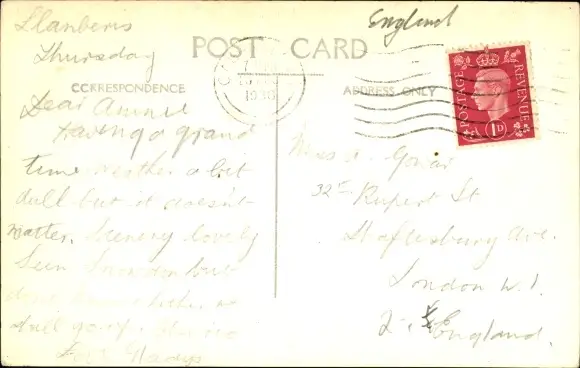 Llanberis
Thursday
England
POST CARD
CORRESPONDENCE
ADDRESS ONLY
POSTAGE
REVENUE
1D
Dear
Having a grand
time weather a bit
dull but it doesn't
matter. Scenery lovely
Seen Snowdon but
dull
Love Gladys
32 Rupert St
Shaftesbury Ave.
London W.1.
England.